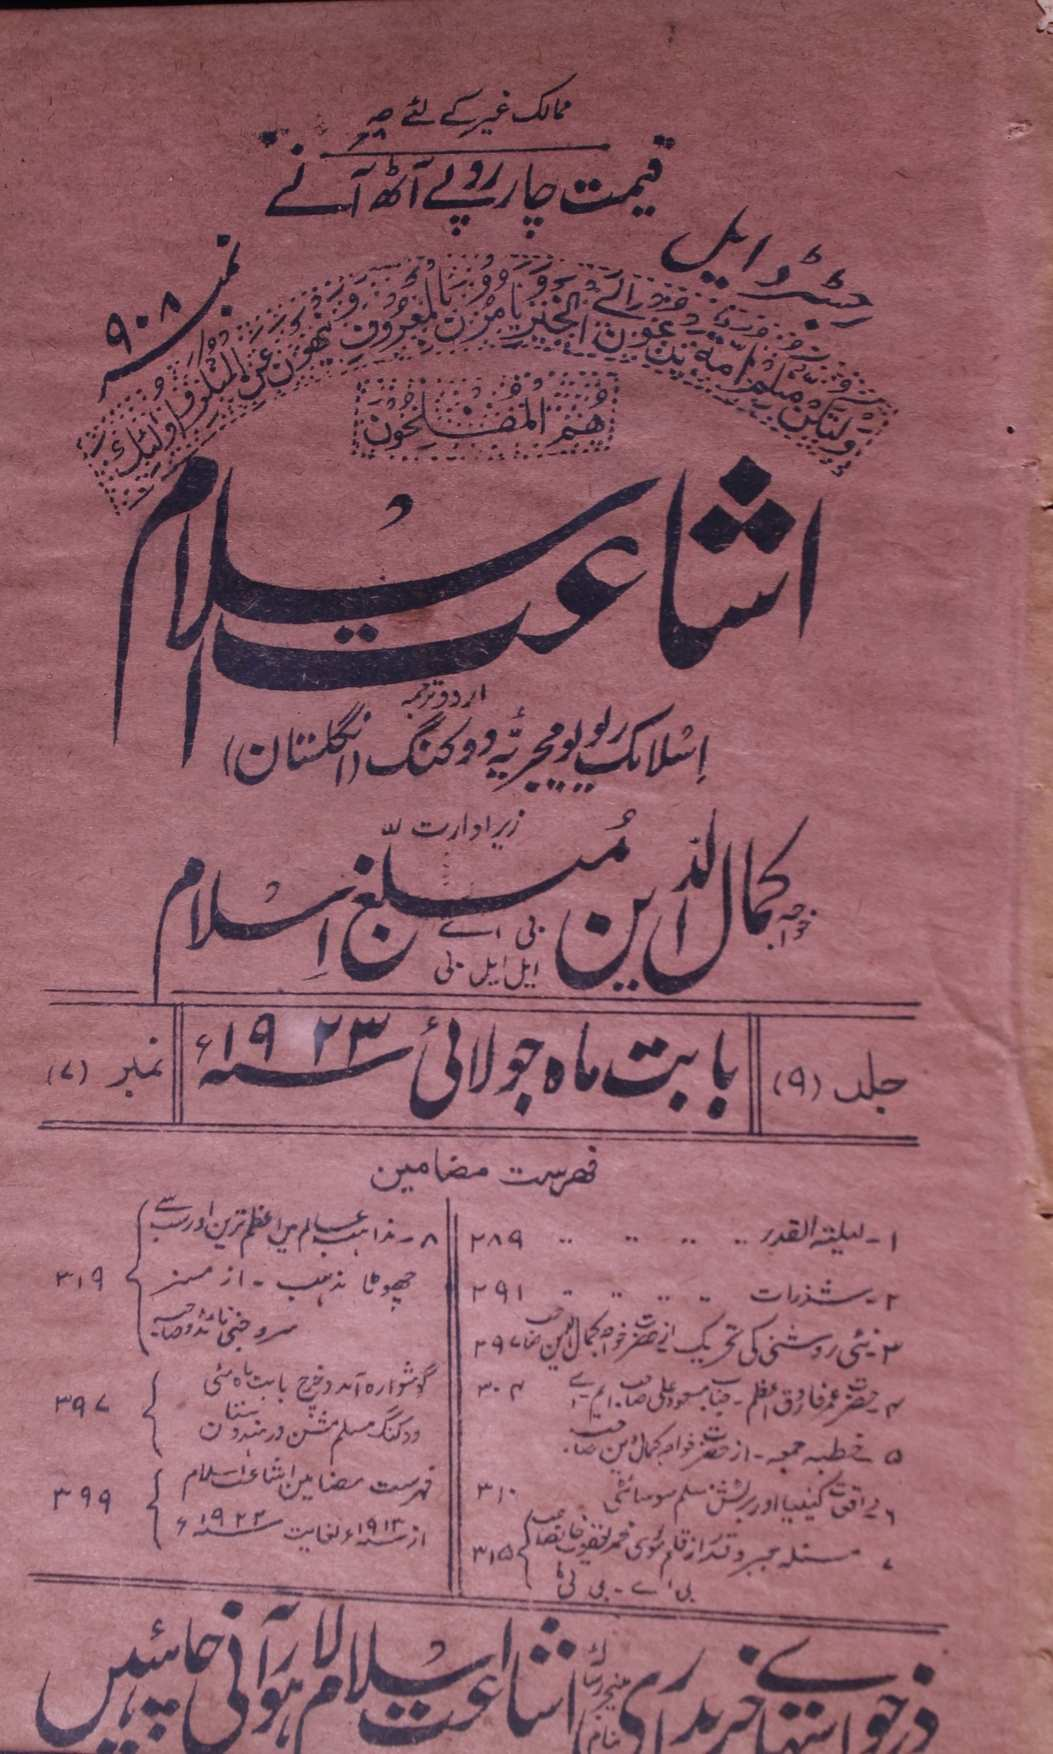 ممالک غیر کے لئے
قیمت چار روپے آٹھ آنے
رجسٹرڈ ایل
نمبر ۹۰۸
وَلْتَكُنْ مِنْكُمْ اُمَّةٌ يَدْعُوْنَ اِلَى الْخَيْرِ وَيَأْمُرُوْنَ بِالْمَعْرُوْفِ وَيَنْهَوْنَ عَنِ الْمُنْكَرِ وَاُولٰئِكَ
هُمُ الْمُفْلِحُوْنَ
اشاعت اسلام
اردو ترجمہ
اسلامک ریویو مجریہ ووکنگ (انگلستان)
زیر ادارت
خواجہ کمال الدین بی اے ایل ایل بی مُبلّغ اِسلام
جلد (۹)
بابت ماہ جولائی سنہ ۱۹۲۳ء
نمبر (۷)
فہرست مضامین
۱ - لیلتہ القدر .. .. .. .. ۲۸۹
۲ - شذرات .. .. .. .. ۲۹۱
۳ - نئی روشنی کی تحریک از حضرت خواجہ کمال الدین صاحب ۲۹۷
۴ - حضرت عمر فاروق اعظم - جناب مسعود علی صاحب ایم - اے ۳۰۴
۵ خطبہ جمعہ - از حضرت خواجہ کمال الدین صاحب
۶ واقعات کینیا اور برٹش مسلم سوسائٹی ۳۱۰
۷ مسئلہ جبر و قدر از قلم مولوی صاحب ۳۱۵
بی اے - بی ٹی
۸ - مذاہب عالم میں اعظم ترین اور سب سے
چھوٹا مذہب - از مسز
سروجنی نائڈو صاحبہ
۳۱۹
گوشوارہ آمد و خرچ بابت ماہ مئی
ووکنگ مسلم مشن در ہندوستان
۳۹۷
فہرست مضامین اشاعت اسلام
از سنہ ۱۹۱۴ء لغایت سنہ ۱۹۲۲ء
۳۹۹
درخواستہائے خریداری بنام منیجر رسالہ اشاعت اسلام لاہور آنی چاہئیں